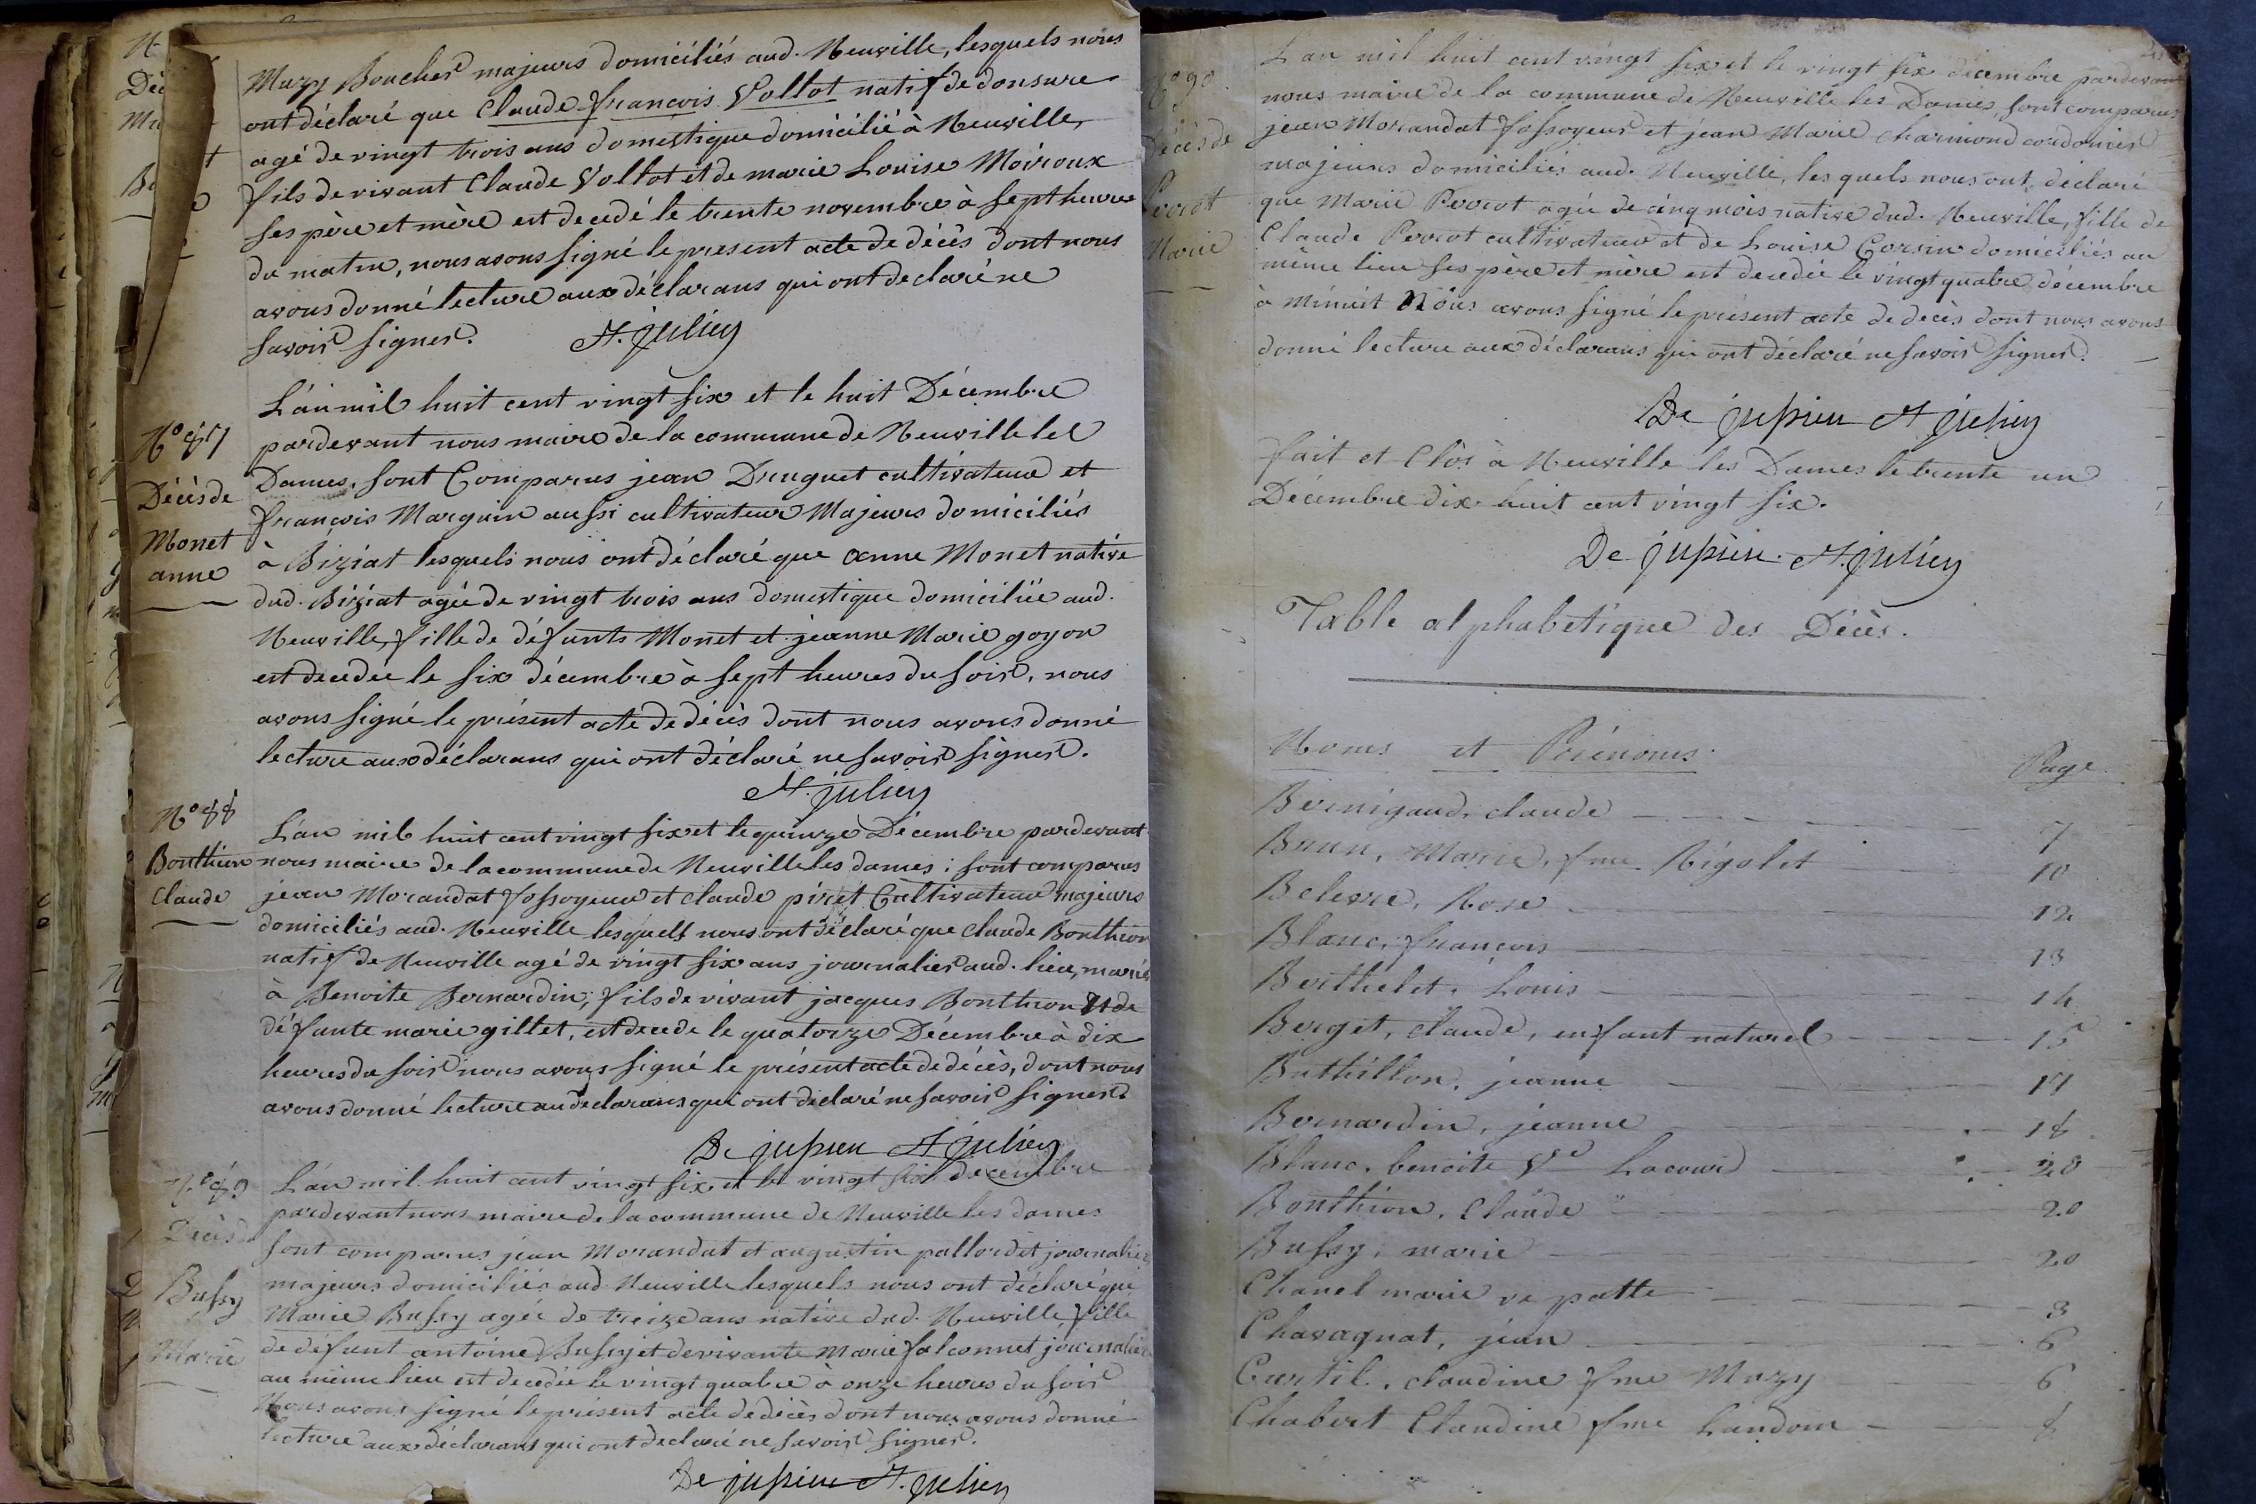 Muzy Boucher majeurs domiciliés aud. Neuville, lesquels nous
ont déclaré que Claude françois Vollot natif de donsure
agé de vingt trois ans domestique domicilié à Neuville,
fils de vivant Claude Vollot et de marie Louise Moiroux
ses père et mère est decedé le trente novembre à sept heures
du matin, nous avons signé le present acte de décès dont nous
avons donné lecture aux déclarans qui ont declaré ne
savoir signer.
St. julien
N° 87
Décès de
Monet
anne
L'an mil huit cent vingt six et le huit Décembre
pardevant nous maire de la commune de Neuville les
Dames, sont Comparus jean Druguet cultivateur et
françois Marguin aussi cultivateur Majeurs domiciliés
à Biziat lesquels nous ont déclaré que anne Monet native
dud. Biziat agée de vingt trois ans domestique domiciliée aud.
Neuville, fille de défunts Monet et jeanne Marie goyon
est decedée le six décembre à sept heures du soir, nous
avons signé le présent acte de décès dont nous avons donné
lecture aux déclarans qui ont déclaré ne savoir signer.
St. julien
N° 88
Bonthion
Claude
L'an mil huit cent vingt six et le quinze Décembre pardevant
nous maire de la commune de Neuville les dames ; sont comparus
jean Morandat fossoyeur et claude piret Cultivateur majeurs
domiciliés aud. Neuville lesquels nous ont déclaré que claude Bonthion
natif de Neuville agé de vingt six ans journalier aud. lieu, marié
à Benoite Bernardin, fils de vivant jacques Bonthion et de
défunte marie gillet, est decede le quatorze Décembre à dix
heures du soir nous avons signé le présent acte de décès, dont nous
avons donné lecture au declarans qui ont déclaré ne savoir signer.
De jussieu St julien
N° 89
Décès
Bussy
Marie
L'an mil huit cent vingt six et le vingt six decembre
pardevant nous maire de la commune de Neuville les dames
sont comparus jean Morandat et augustin pallordet journalier
majeurs domiciliés aud Neuville lesquels nous ont déclaré que
Marie Bussy agée de treize ans native dud. Neuville fille
de défunt antoine Bussy et de vivante Marie falconnet journalier
au même lieu est decedée le vingt quatre à onze heures du soir
Nous avons signé le présent acte de decès dont nous avons donné
lecture aux déclarans qui ont declaré ne savoir signer.
De jussieu St. julien
N° 90
Décès de
Perrot
Marie
L'an mil huit cent vingt six et le vingt six decembre pardevant
nous maire de la commune de Neuville les Dames, sont comparus
jean Morandat fossoyeur et jean Marie Charmond cordonier
majeurs domiciliés aud. Neuville, les quels nous ont déclaré
que Marie Perrot agée de cinq mois native dud. Neuville, fille de
Claude Perrot cultivateur et de Louise Corsin domiciliés au
même lieu ses père et mère est decedée le vingt quatre décembre
à minuit Nous avons signé le présent acte de decès dont nous avons
donné lecture aux déclarans qui ont déclaré ne savoir signer.
De jussieu St julien
fait et Clos à Neuville les Dames le trente un
Décembre dix-huit cent vingt six.
De jussieu St. julien
Table alphabétique des Décès.
Noms et Prénoms. Page
Bernigaud, claude 7
Brun, Marie, fme Rigolet 10
Belesne, Rose 12
Blanc, françois 13
Berthelet, Louis 14
Berget, claude, enfant naturel 15
Buthillon, jeanne 17
Bernardin, jeanne 18
Blanc, benoite Ve Lacour 20
Bonthion, Claude 20
Bussy, marie 20
Chanel marie ve patte 3
Chavagnat, jean 6
Curtil, claudine fme Muzy 6
Chabert Claudine fme Landom 8